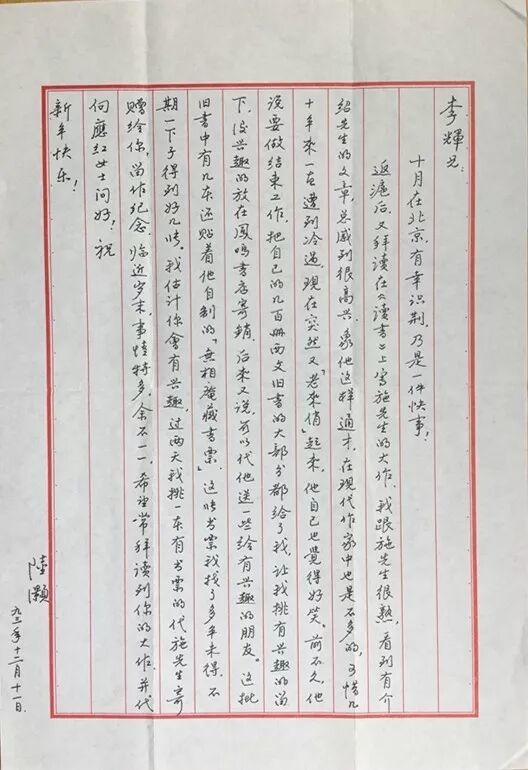 李輝兄:
十月在北京有幸识荆,乃是一件快事!
返滬后,又拜读在《读书》上写施先生的大作。我跟施先生很熟,看到有介
绍先生的文章,总感到很高兴。象他这样通才,在现代作家中也是不多的,可惜几
十年来一直遭到冷遇。现在突然又"老来俏"起来,他自己也覺得好笑。前不久,他
说要做结束工作,把自己的几百册西文旧书的大部分都给了我,让我挑有兴趣的留
下,没兴趣的放在鳳鸣書店寄銷。后来又说,可以代他送一些给有兴趣的朋友。这批
旧書中有几本还贴着他自制的"無相庵藏書票",这帖书票我找了多年未得,不
期一下子得到好几帖。我估计你會有兴趣,过两天我挑一本有书票的代施先生寄
赠给你,留作纪念。临近岁末,事情特多,余不一一。希望常拜读到你的大作。并代
向應红女士问好!祝
新年快乐!
陸灝
九三年十二月十一日.